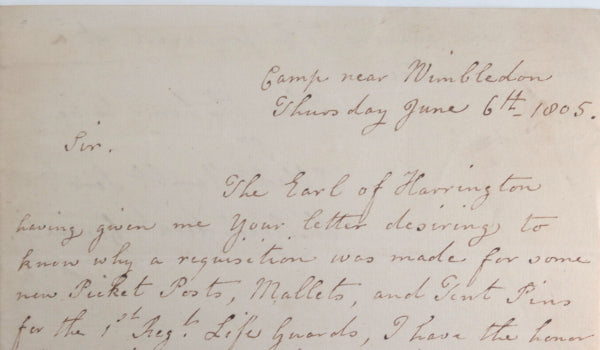 Camp near Wimbledon
Thursday June 6th 1805.
Sir.
The Earl of Harrington
having given me Your letter desiring to
know why a requisition was made for some
new Picket Posts, Mallets, and Tent Pins
for the 1st Regt. Life Guards, I have the honor